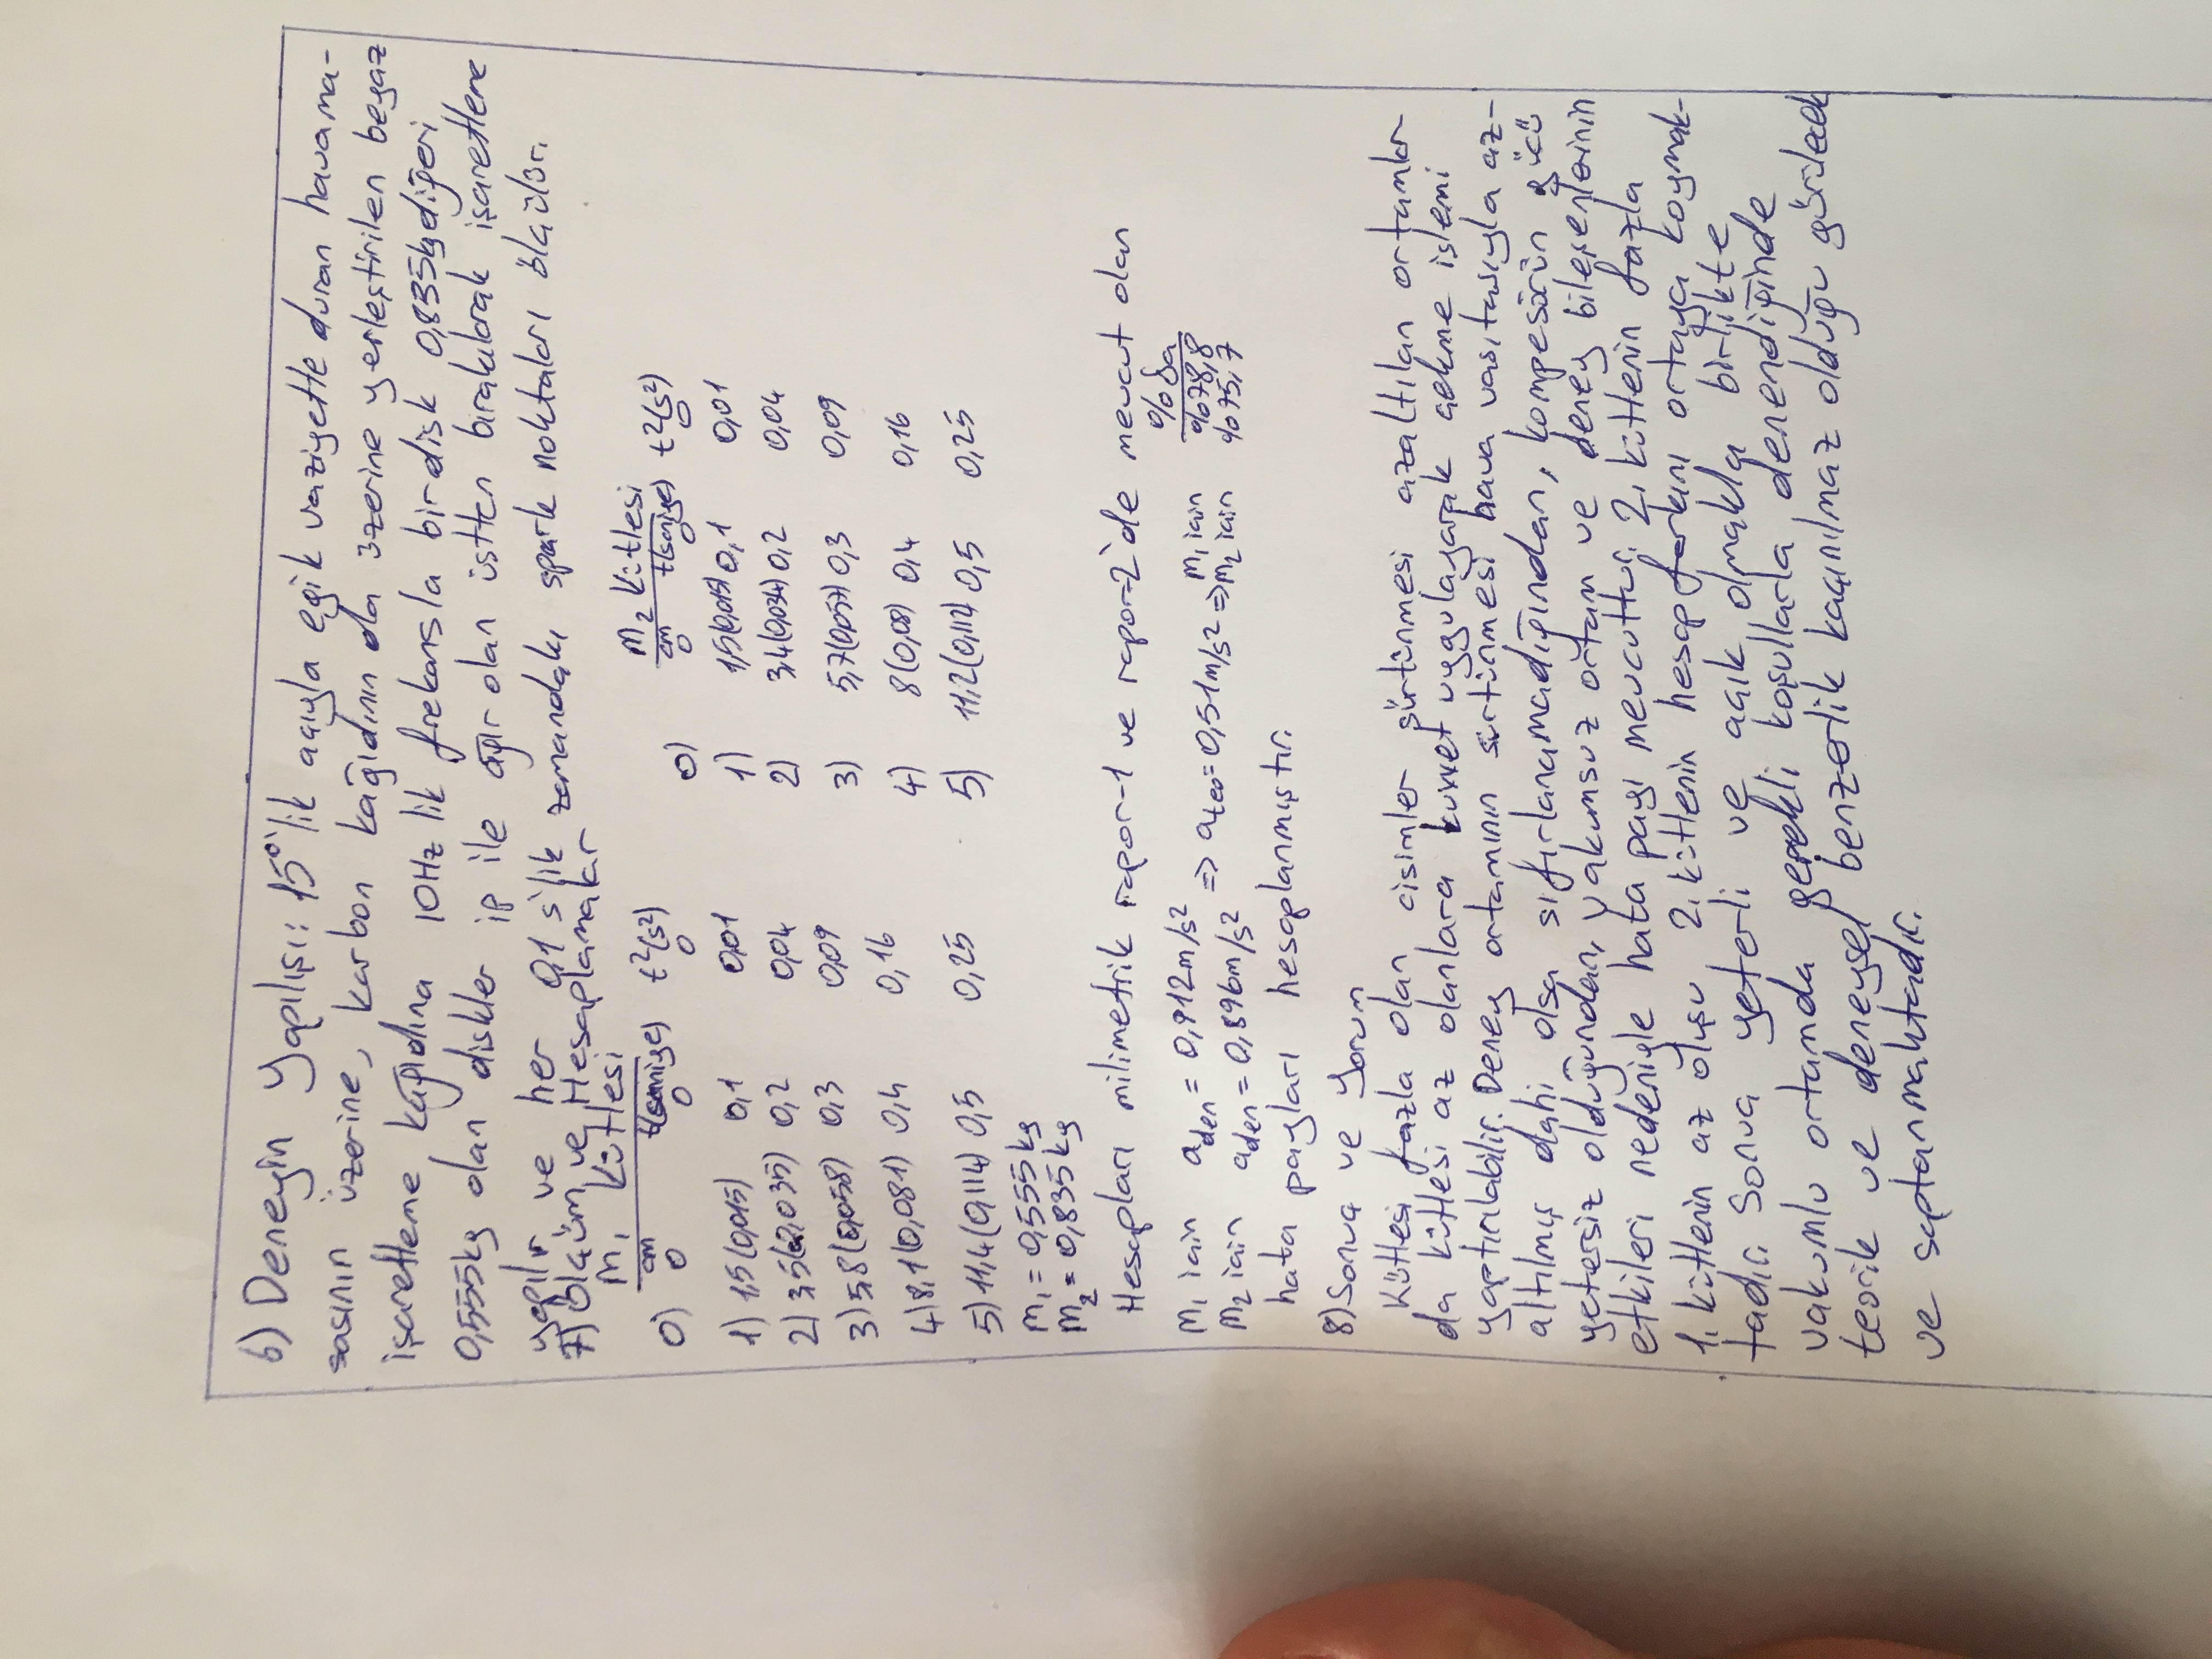 6) Deneyin Yapılışı: 15°'lik açıyla eğik vaziyette duran havama-
sasının üzerine, karbon kağıdının da üzerine yerleştirilen beyaz
işaretleme kağıdına 10Hz lik frekansla bir disk 0,835kg diğeri
0,555kg olan diskler ip ile ağır olan üstten bırakılarak işaretleme
yapılır, ve her 0,1 s'lik zamandaki spark noktaları ölçülür.
7) Ölçüm ve Hesaplamalar
m₁ Kütlesi m₂ Kütlesi
cm t(saniye) t²(s²) cm t(saniye) t²(s²)
0) 0 0 0 0) 0 0 0
1) 1,5(0,015) 0,1 0,01 1) 1,5(0,015) 0,1 0,01
2) 3,5(0,035) 0,2 0,04 2) 3,4(0,034) 0,2 0,04
3) 5,8(0,058) 0,3 0,09 3) 5,7(0,057) 0,3 0,09
4) 8,1(0,081) 0,4 0,16 4) 8(0,08) 0,4 0,16
5) 11,4(0,114) 0,5 0,25 5) 11,2(0,112) 0,5 0,25
m₁ = 0,555kg
m₂ = 0,835kg
Hesapları milimetrik rapor-1 ve rapor-2'de mevcut olan
% δa
m₁ için a_den = 0,912m/s² => a_teo = 0,51m/s² => m₁ için %78,8
m₂ için a_den = 0,896m/s² m₂ için %75,7
hata payları hesaplanmıştır.
8) Sonuç ve Yorum
Kütlesi fazla olan cisimler sürtünmesi azaltılan ortamlar
da kütlesi az olanlara kuvvet uygulayarak çekme işlemi
yaptırılabilir. Deney ortamının sürtünmesi hava vasıtasıyla az-
altılmış dahi olsa sıfırlanamadığından, kompesörün gücü
yetersiz olduğundan, vakumsuz ortam ve deney bileşenlerinin
etkileri nedeniyle hata payı mevcuttur. 2. kütlenin fazla
1. kütlenin az oluşu 2. kütlenin hesap farkını ortaya koymak-
tadır. Sonuç yeterli ve açık olmakla birlikte
vakumlu ortamda gerekli koşullarla denendiğinde
teorik ve deneysel benzerlik kaçınılmaz olduğu görülecek
ve saptanmaktadır.